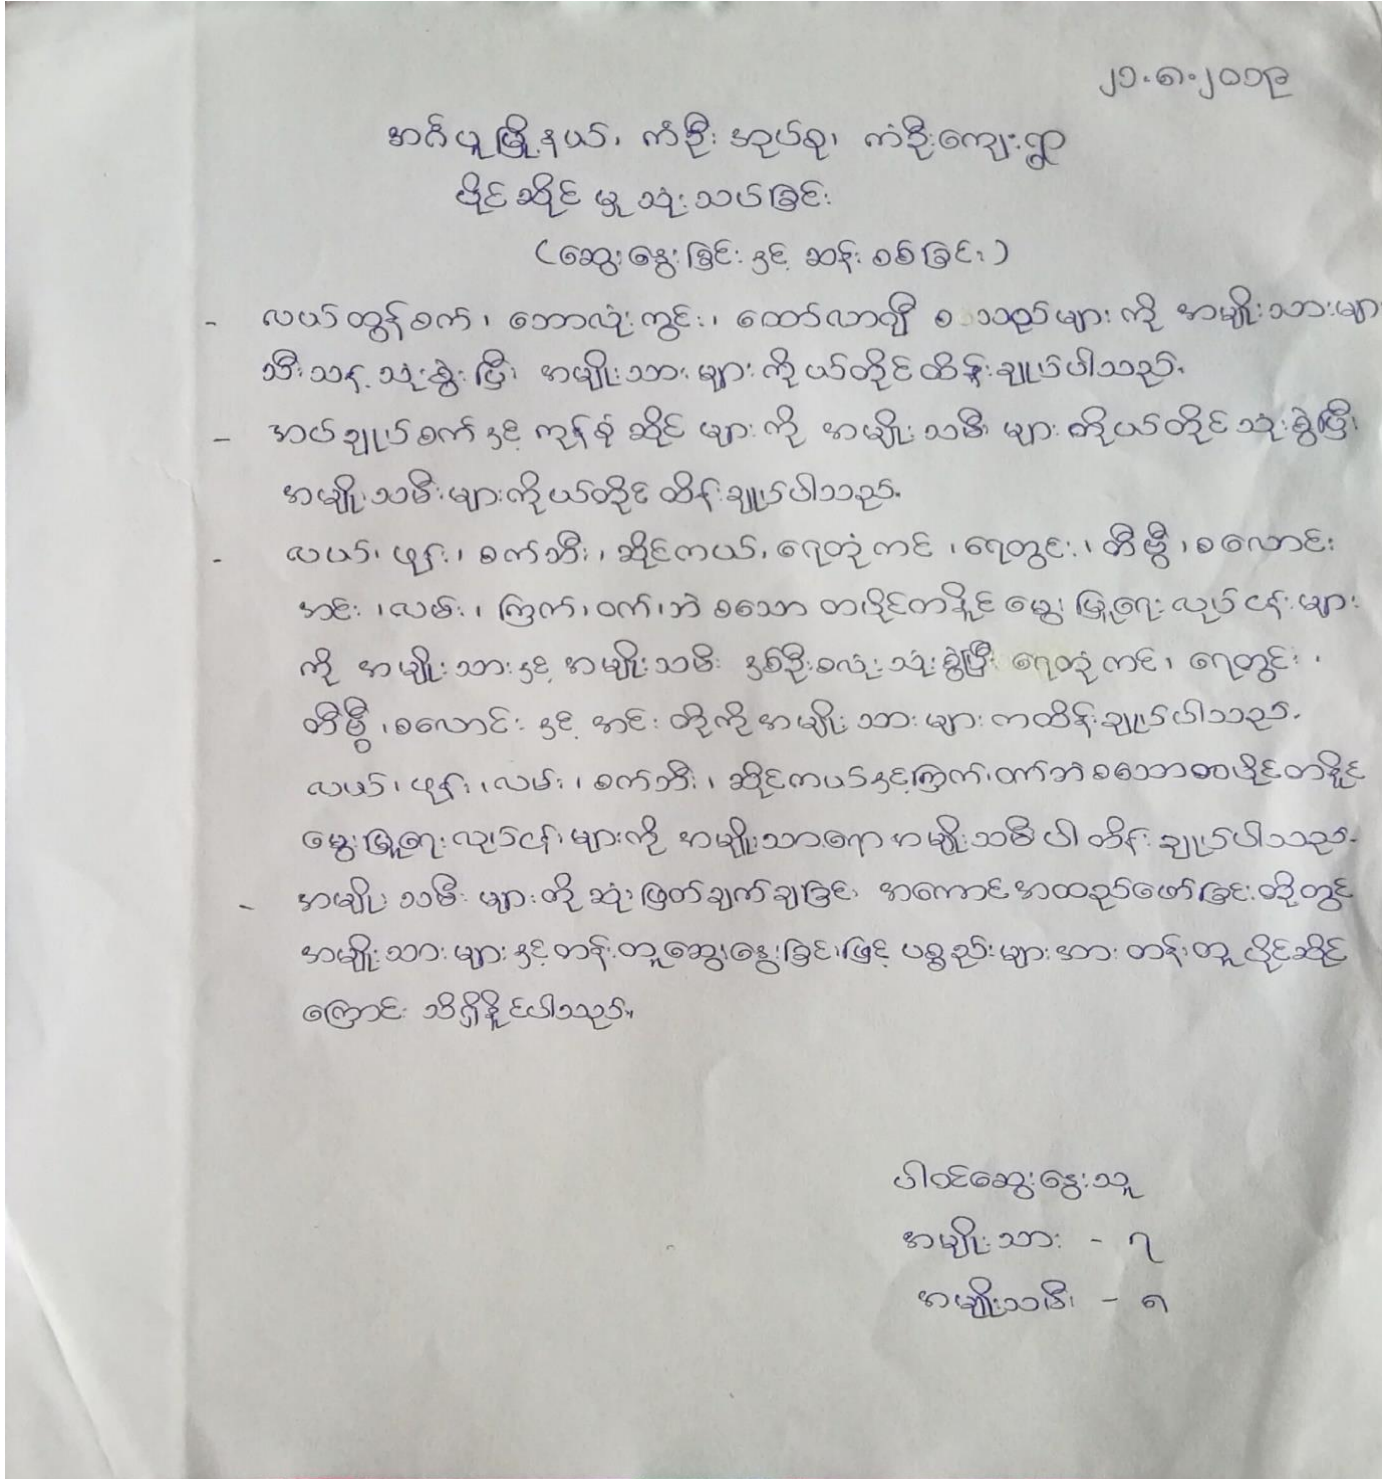 ၂၁.၈.၂၀၁၉
အင်ပူမြို့နယ်၊ ကံဦးအုပ်စု၊ ကံဦးကျေးရွာ
ပိုင်ဆိုင်မှုသုံးသပ်ခြင်း
(ဆွေးနွေးခြင်းနှင့် ဆန်းစစ်ခြင်း)
- လယ်ထွန်စက်၊ ဘောလုံးကွင်း၊ ထော်လာဂျီ စသည်များကို အမျိုးသားများ
သီးသန့်သုံးစွဲပြီး အမျိုးသားများကိုယ်တိုင်ထိန်းချုပ်ပါသည်။
- အပ်ချုပ်စက်နှင့် ကုန်စုံဆိုင်များကို အမျိုးသမီးများကိုယ်တိုင်သုံးစွဲပြီး
အမျိုးသမီးများကိုယ်တိုင်ထိန်းချုပ်ပါသည်။
- လယ်၊ ဖုန်း၊ စက်ဘီး၊ ဆိုင်ကယ်၊ ရေတုံကင်၊ ရေတွင်း၊ တီဗွီ၊ စလောင်း
အင်း၊ လမ်း၊ ကြက်၊ ဝက်၊ ဘဲ စသော တပိုင်တနိုင်မွေးမြူရေးလုပ်ငန်းများ
ကို အမျိုးသားနှင့် အမျိုးသမီး နှစ်ဦးစလုံးသုံးစွဲပြီး ရေတုံကင်၊ ရေတွင်း၊
တီဗွီ၊ စလောင်းနှင့် အင်းတို့ကို အမျိုးသားများကထိန်းချုပ်ပါသည်။
လယ်၊ ဖုန်း၊ လမ်း၊ စက်ဘီး၊ ဆိုင်ကယ်နှင့်ကြက်၊ ဝက်ဘဲစသောတပိုင်တနိုင်
မွေးမြူရေးလုပ်ငန်းများကို အမျိုးသားရောအမျိုးသမီးပါ ထိန်းချုပ်ပါသည်။
- အမျိုးသမီးများတို့ ဆုံးဖြတ်ချက်ချခြင်း၊ အကောင်အထည်ဖော်ခြင်းတို့တွင်
အမျိုးသားများနှင့်တန်းတူဆွေးနွေးခြင်းဖြင့် ပစ္စည်းများအား တန်းတူပိုင်ဆိုင်
ကြောင်း သိရှိနိုင်ပါသည်။
ပါဝင်ဆွေးနွေးသူ
အမျိုးသား - ၇
အမျိုးသမီး - ၈